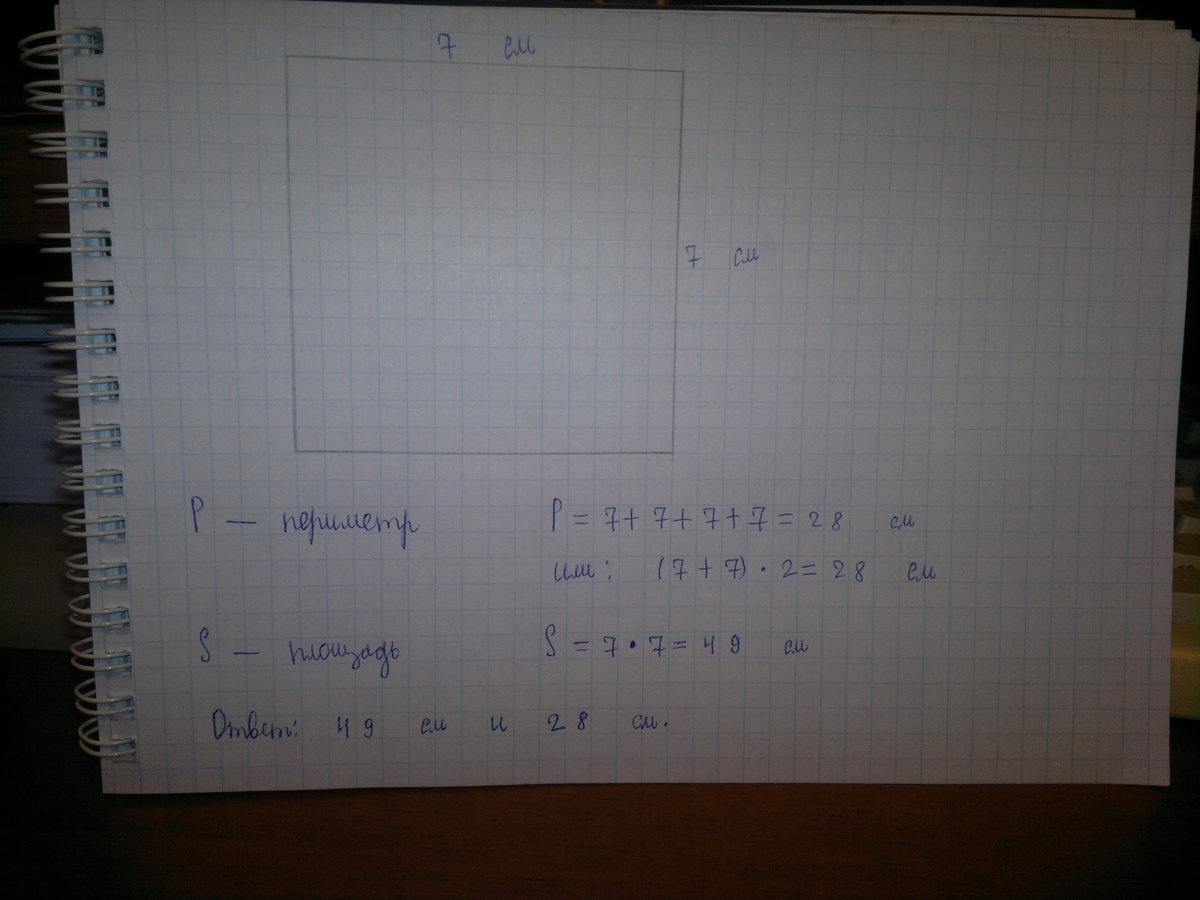 7 см
7 см
P — периметр P = 7 + 7 + 7 + 7 = 28 см
или: (7 + 7) · 2 = 28 см
S — площадь S = 7 · 7 = 49 см
Ответ: 49 см и 28 см.